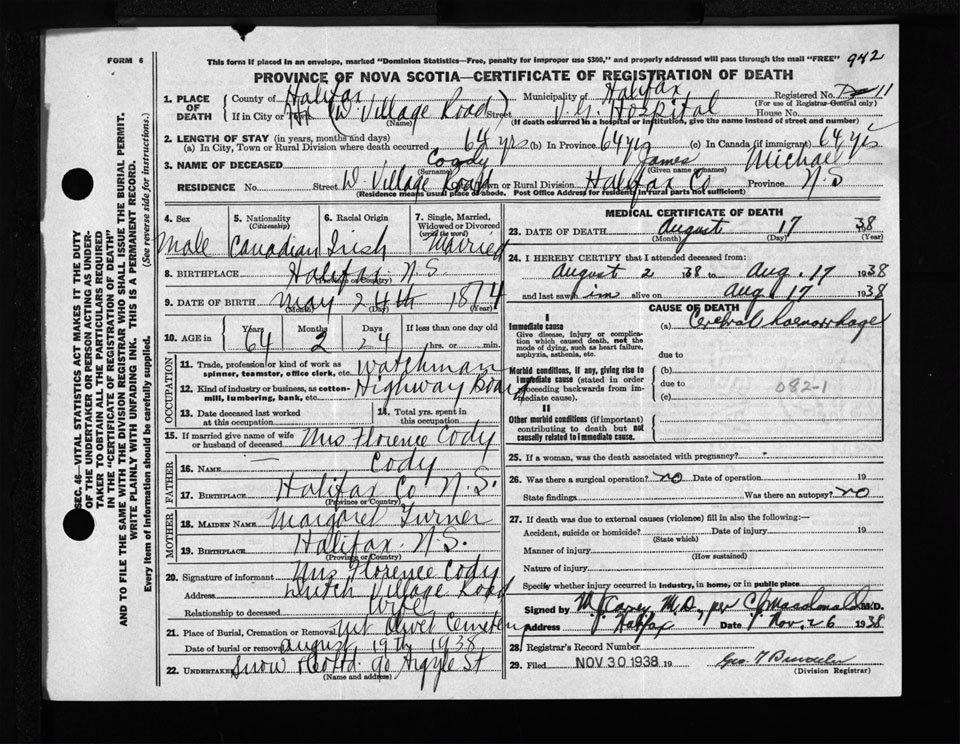 FORM 6
This form if placed in an envelope, marked "Dominion Statistics—Free, penalty for improper use $300," and properly addressed will pass through the mail "FREE" 942
PROVINCE OF NOVA SCOTIA—CERTIFICATE OF REGISTRATION OF DEATH
SEC. 46—VITAL STATISTICS ACT MAKES IT THE DUTY
OF THE UNDERTAKER OR PERSON ACTING AS UNDER-
TAKER TO OBTAIN ALL THE PARTICULARS REQUIRED
IN THE "CERTIFICATE OF REGISTRATION OF DEATH"
AND TO FILE THE SAME WITH THE DIVISION REGISTRAR WHO SHALL ISSUE THE BURIAL PERMIT.
WRITE PLAINLY WITH UNFADING INK. THIS IS A PERMANENT RECORD.
Every item of information should be carefully supplied. (See reverse side for instructions.)
1. PLACE OF DEATH
County of Halifax Municipality of Halifax Registered No. 11
(For use of Registrar General only)
If in City or Town (D Village Road) Street V. G. Hospital House No.
(Name) (If death occurred in a hospital or institution, give the name instead of street and number)
2. LENGTH OF STAY (in years, months and days)
(a) In City, Town or Rural Division where death occurred 64 yrs (b) In Province 64 yrs (c) In Canada (if immigrant) 64 yrs
3. NAME OF DECEASED Cody James Michael
(Surname) (Given name or names)
RESIDENCE No. Street D. Village Road Town or Rural Division Halifax Co Province N S
(Residence means usual place of abode. Post Office Address for residents in rural parts not sufficient)
4. Sex
Male
5. Nationality
(Citizenship)
Canadian
6. Racial Origin
Irish
7. Single, Married,
Widowed or Divorced
(write the word)
Married
8. BIRTHPLACE Halifax N.S.
(Province or Country)
9. DATE OF BIRTH May 24th 1874
(Month) (Day) (Year)
10. AGE in Years Months Days If less than one day old
64 2 24 hrs. or min.
OCCUPATION
11. Trade, profession or kind of work as
spinner, teamster, office clerk, etc. Watchman
12. Kind of industry or business, as cotton-
mill, lumbering, bank, etc. Highway Board
13. Date deceased last worked
at this occupation
14. Total yrs. spent in
this occupation
15. If married give name of wife
or husband of deceased Mrs Florence Cody
FATHER
16. Name — Cody
17. Birthplace Halifax Co N.S.
(Province or Country)
MOTHER
18. Maiden Name Margaret Turner
19. Birthplace Halifax. N.S.
(Province or Country)
20. Signature of informant Mrs Florence Cody
Address Dutch Village Road
Relationship to deceased Wife
21. Place of Burial, Cremation or Removal Mt Olivet Cemetery
Date of burial or removal August 19th 1938
22. UNDERTAKER Snow & Co Ltd. 90 Argyle St
(Name and address)
MEDICAL CERTIFICATE OF DEATH
23. DATE OF DEATH August 17 38
(Month) (Day) (Year)
24. I HEREBY CERTIFY that I attended deceased from:
August 2 1938 to Aug. 17 1938
and last saw im alive on Aug 17 1938
CAUSE OF DEATH
I
Immediate cause
Give disease, injury or complica-
tion which caused death, not the
mode of dying, such as heart failure,
asphyxia, asthenia, etc.
(a) Cerebral haemorrhage
due to
Morbid conditions, if any, giving rise to
immediate cause (stated in order
proceeding backwards from im-
mediate cause).
(b)
due to 082-1
(c)
II
Other morbid conditions (if important)
contributing to death but not
causally related to immediate cause.
25. If a woman, was the death associated with pregnancy?
26. Was there a surgical operation? no Date of operation 19
State findings Was there an autopsy? no
27. If death was due to external causes (violence) fill in also the following:—
Accident, suicide or homicide? Date of injury 19
(State which)
Manner of injury
(How sustained)
Nature of injury
Specify whether injury occurred in industry, in home, or in public place
Signed by M.D., per C. Macdonald M.D.
Address Halifax Date Nov. 26 1938
28. Registrar's Record Number
29. Filed NOV 30 1938 19 Geo.
(Division Registrar)